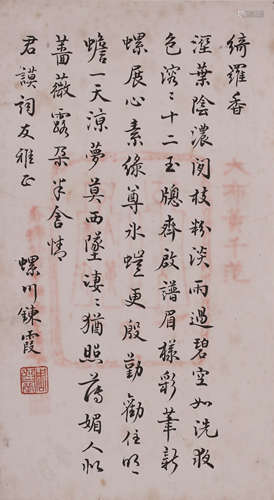 綺羅香
溼葉陰濃閑枝粉淡雨過碧空如洗
色溶溶十二玉牕齊啟譜眉樣彩筆新
螺展心素綠尊氷 更殷勤勸住
蟾一天涼夢莫西墜淒淒猶照 媚人似
薔薇露朶半含情
君謨詞友雅正
螺川鍊霞